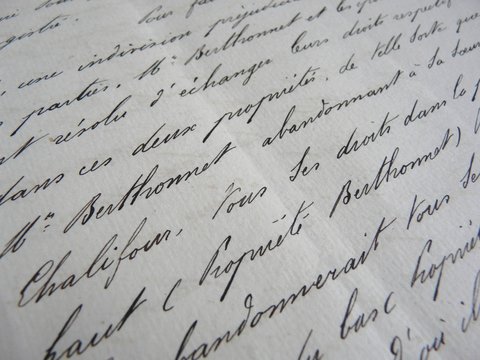 une indivision préjudici
parties, Mr Berthonnet et
résolu d'échanger leurs droits respectif
dans ces deux propriétés, de telle sorte que
Mr Berthonnet abandonnant à sa sœur
Chalifour, tous ses droits dans la p
haut (Propriété Berthonnet)
abandonnerait tous se
du bas (Propriété
d'où il